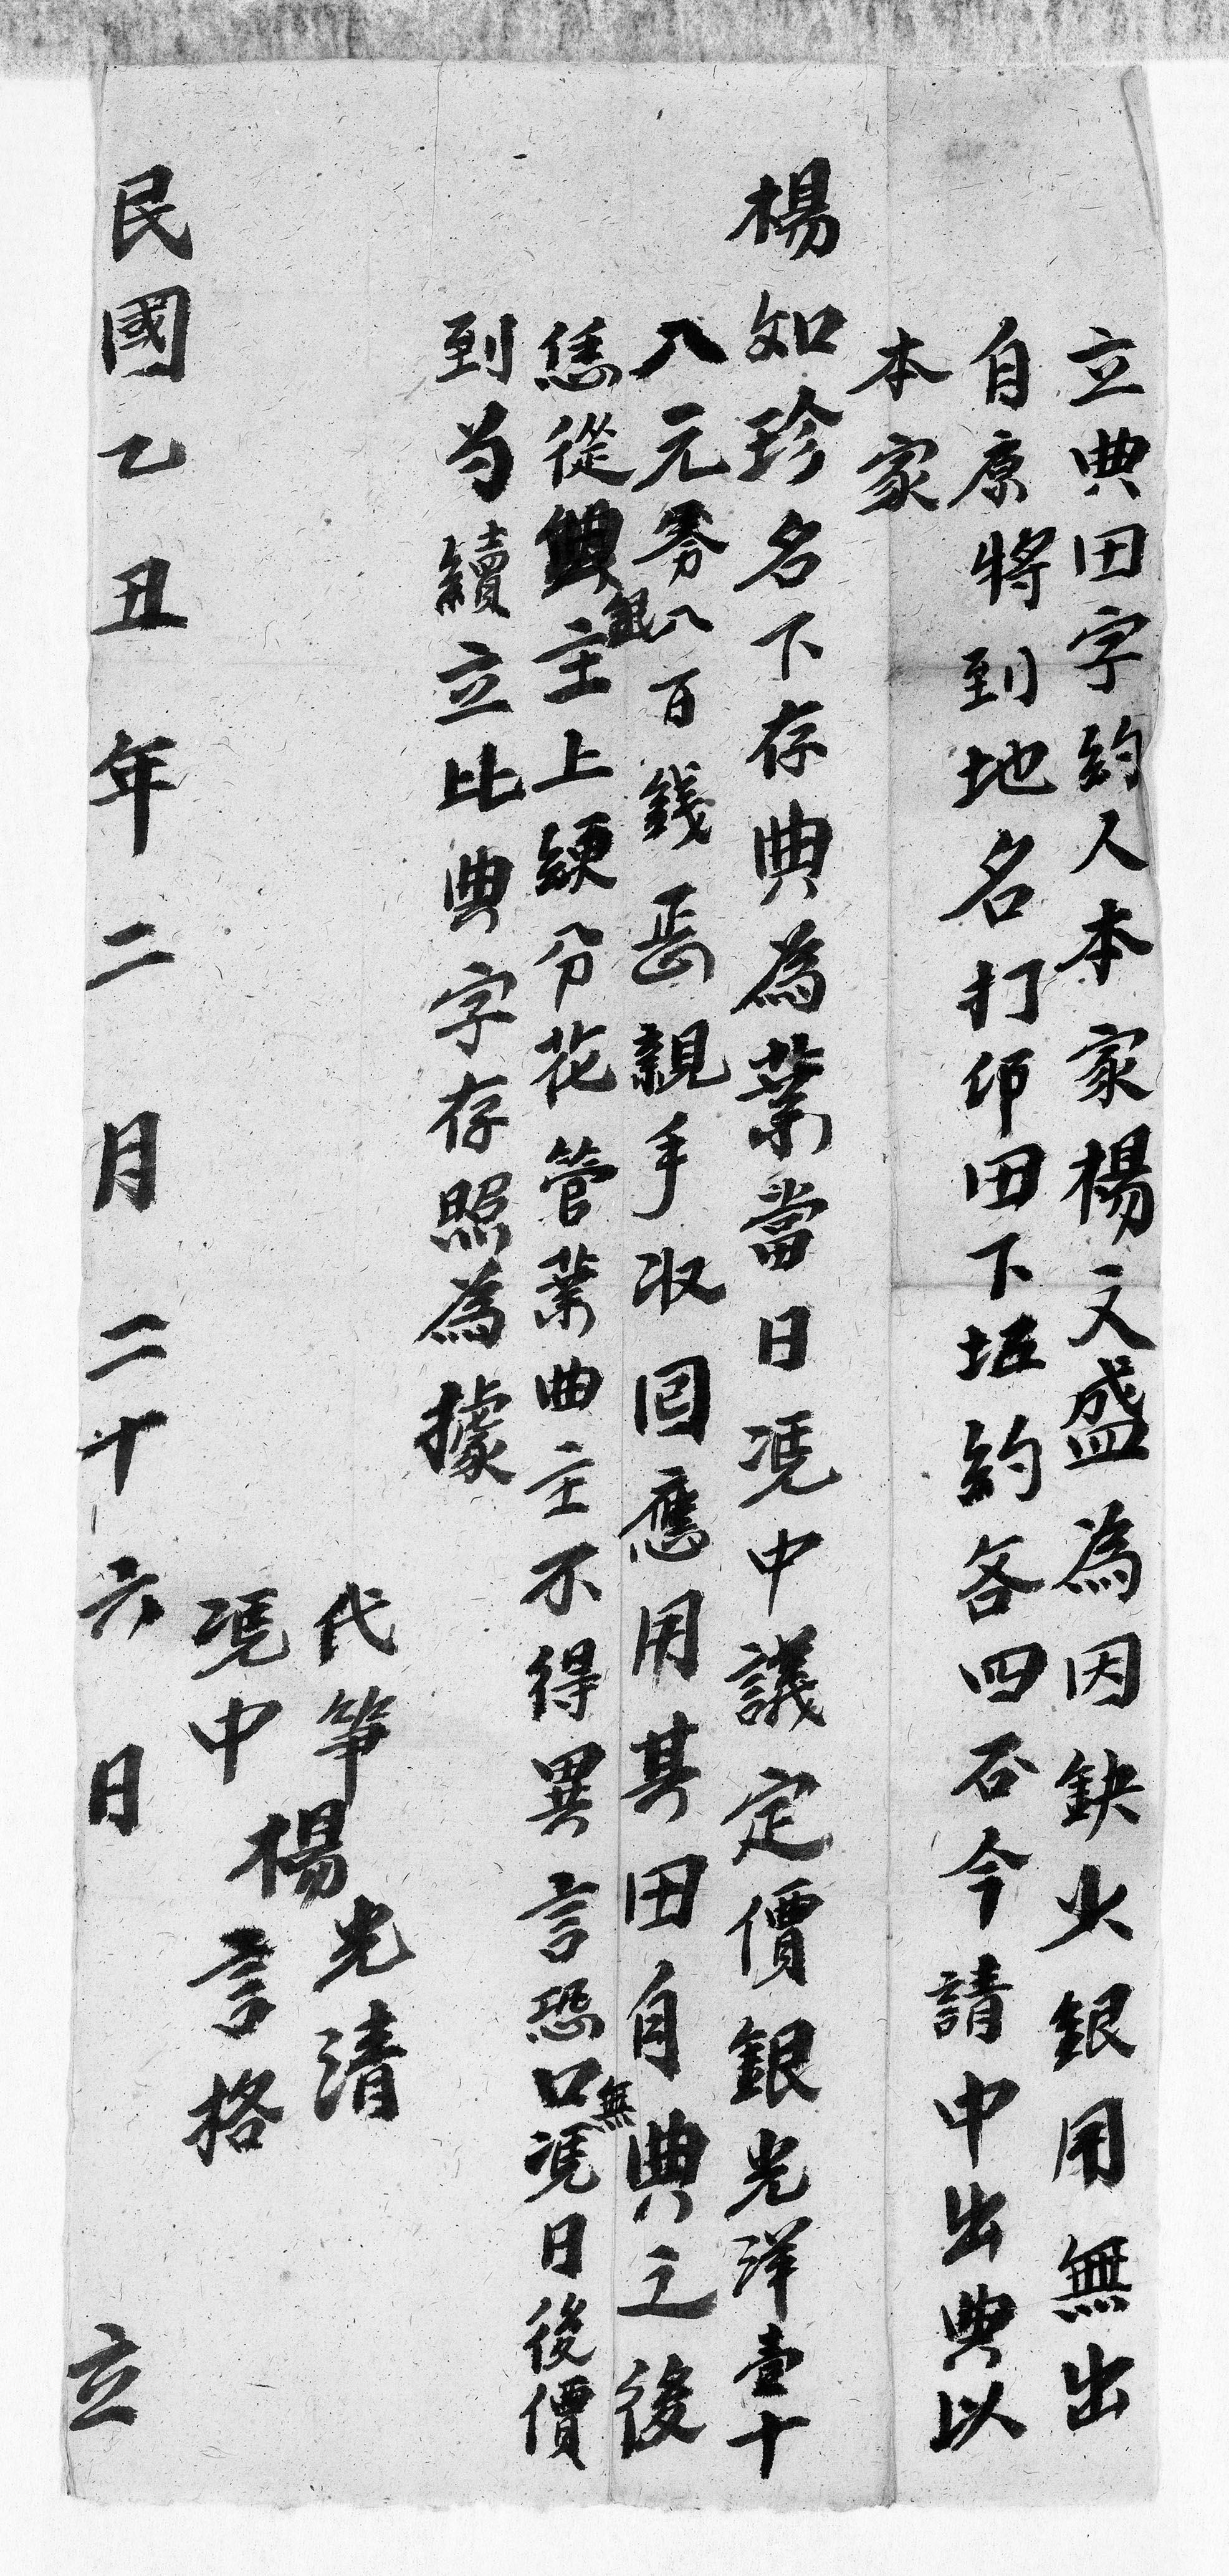 立典田字約人本家楊文盛為因缺少銀用無出
自愿將到地名打卬田下坵約各四石今請中出典以
本家
楊如珍名下存典為業當日凴中議定價銀光洋壹十
八元零八百錢 親手收囘應用其田自典之後
恁從典銀主上 分花管業曲主不得異言恐口無凴日後價
到为續立比典字存照為據
代筆楊光清
凴中 言格
民國乙丑年二月二十六日 立